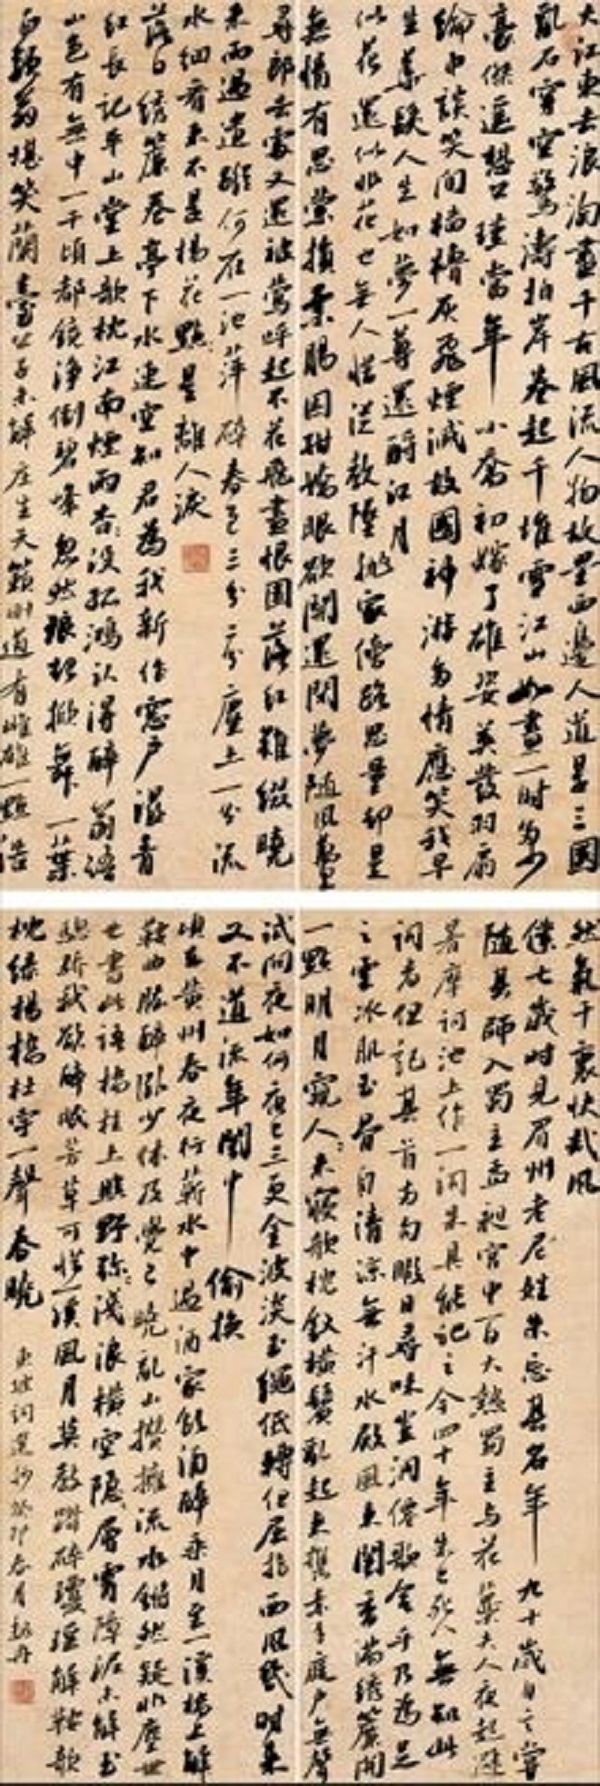 大江東去浪淘盡千古風流人物故壘西邊人道是三國
亂石穿空驚濤拍岸卷起千堆雪江山如畫一時多少
豪傑遙想公瑾當年小喬初嫁了雄姿英發羽扇
綸巾談笑間檣櫓灰飛煙滅故國神游多情應笑我早
生華髮人生如夢一尊還酹江月
似花還似非花也無人惜從教墜拋家傍路思量卻是
無情有思縈損柔腸困酣嬌眼欲開還閉夢隨風萬里
尋郎去處又還被鶯呼起不花飛盡恨園落紅難綴曉
來雨過遺蹤何在一池萍碎春色三分二分塵土一分流
水細看來不是楊花點點是離人淚
落日繡簾卷亭下水連空知君為我新作窗戶濕青
紅長記平山堂上欹枕江南煙雨杳杳沒孤鴻認得醉翁語
山色有無中一千頃都鏡淨倒碧峰忽然浪起掀舞一葉
白頭翁堪笑蘭臺公子未解莊生天籟剛道有雌雄一點浩
然氣千里快哉風
僕七歲時見眉州老尼姓朱忘其名年九十歲自言嘗
隨其師入蜀主孟昶宮中一日大熱蜀主與花蕊夫人夜起避
暑摩訶池上作一詞朱具能記之今四十年朱已死人無知此
詞者但記其首兩句暇日尋味豈洞仙歌令乎乃為足
之云冰肌玉骨自清涼無汗水殿風來暗香滿繡簾開
一點明月窺人人未寢欹枕釵橫鬢亂起來攜素手庭戶無聲
試問夜如何夜已三更金波淡玉繩低轉但屈指西風幾時來
又不道流年暗中偷換
頃在黃州春夜行蘄水中過酒家飲酒醉乘月至一溪橋上解
鞍曲肱醉臥少休及覺已曉亂山攢擁流水鏘然疑非塵世
也書此語橋柱上照野彌彌淺浪橫空隱隱層霄障泥未解玉
驄驕我欲醉眠芳草可惜一溪風月莫教踏碎瓊瑤解鞍欹
枕綠楊橋杜宇一聲春曉
東坡詞選抄癸卯春月